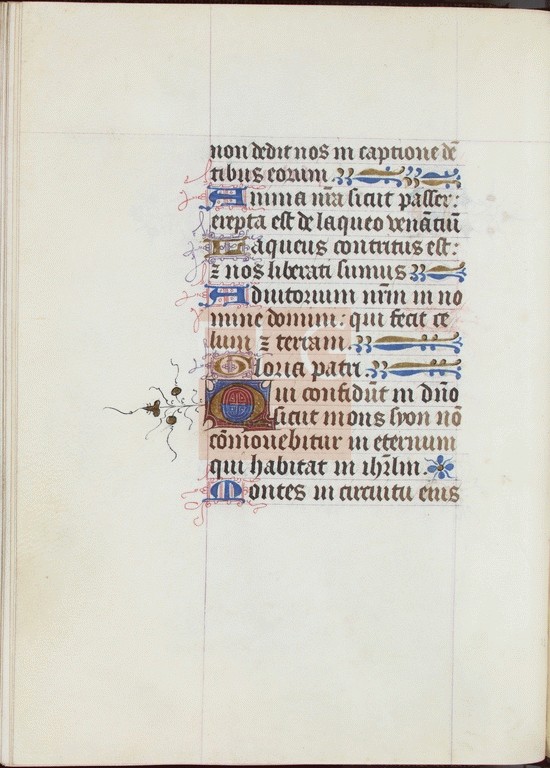 non dedit nos in captione dē
tibus eorum.
Anima nr̄a sicut passer:
erepta est de laqueo venātiū
Laqueus contritus est:
⁊ nos liberati sumus
Adiutorium nrm̄ in no
mine domini: qui fecit ce
lum ⁊ terram.
Gloria patri.
Qui confidūt in dn̄o
sicut mons syon nō
cōmovebitur in eternum
qui habitat in ihrl̄m.
Montes in circuitu eius